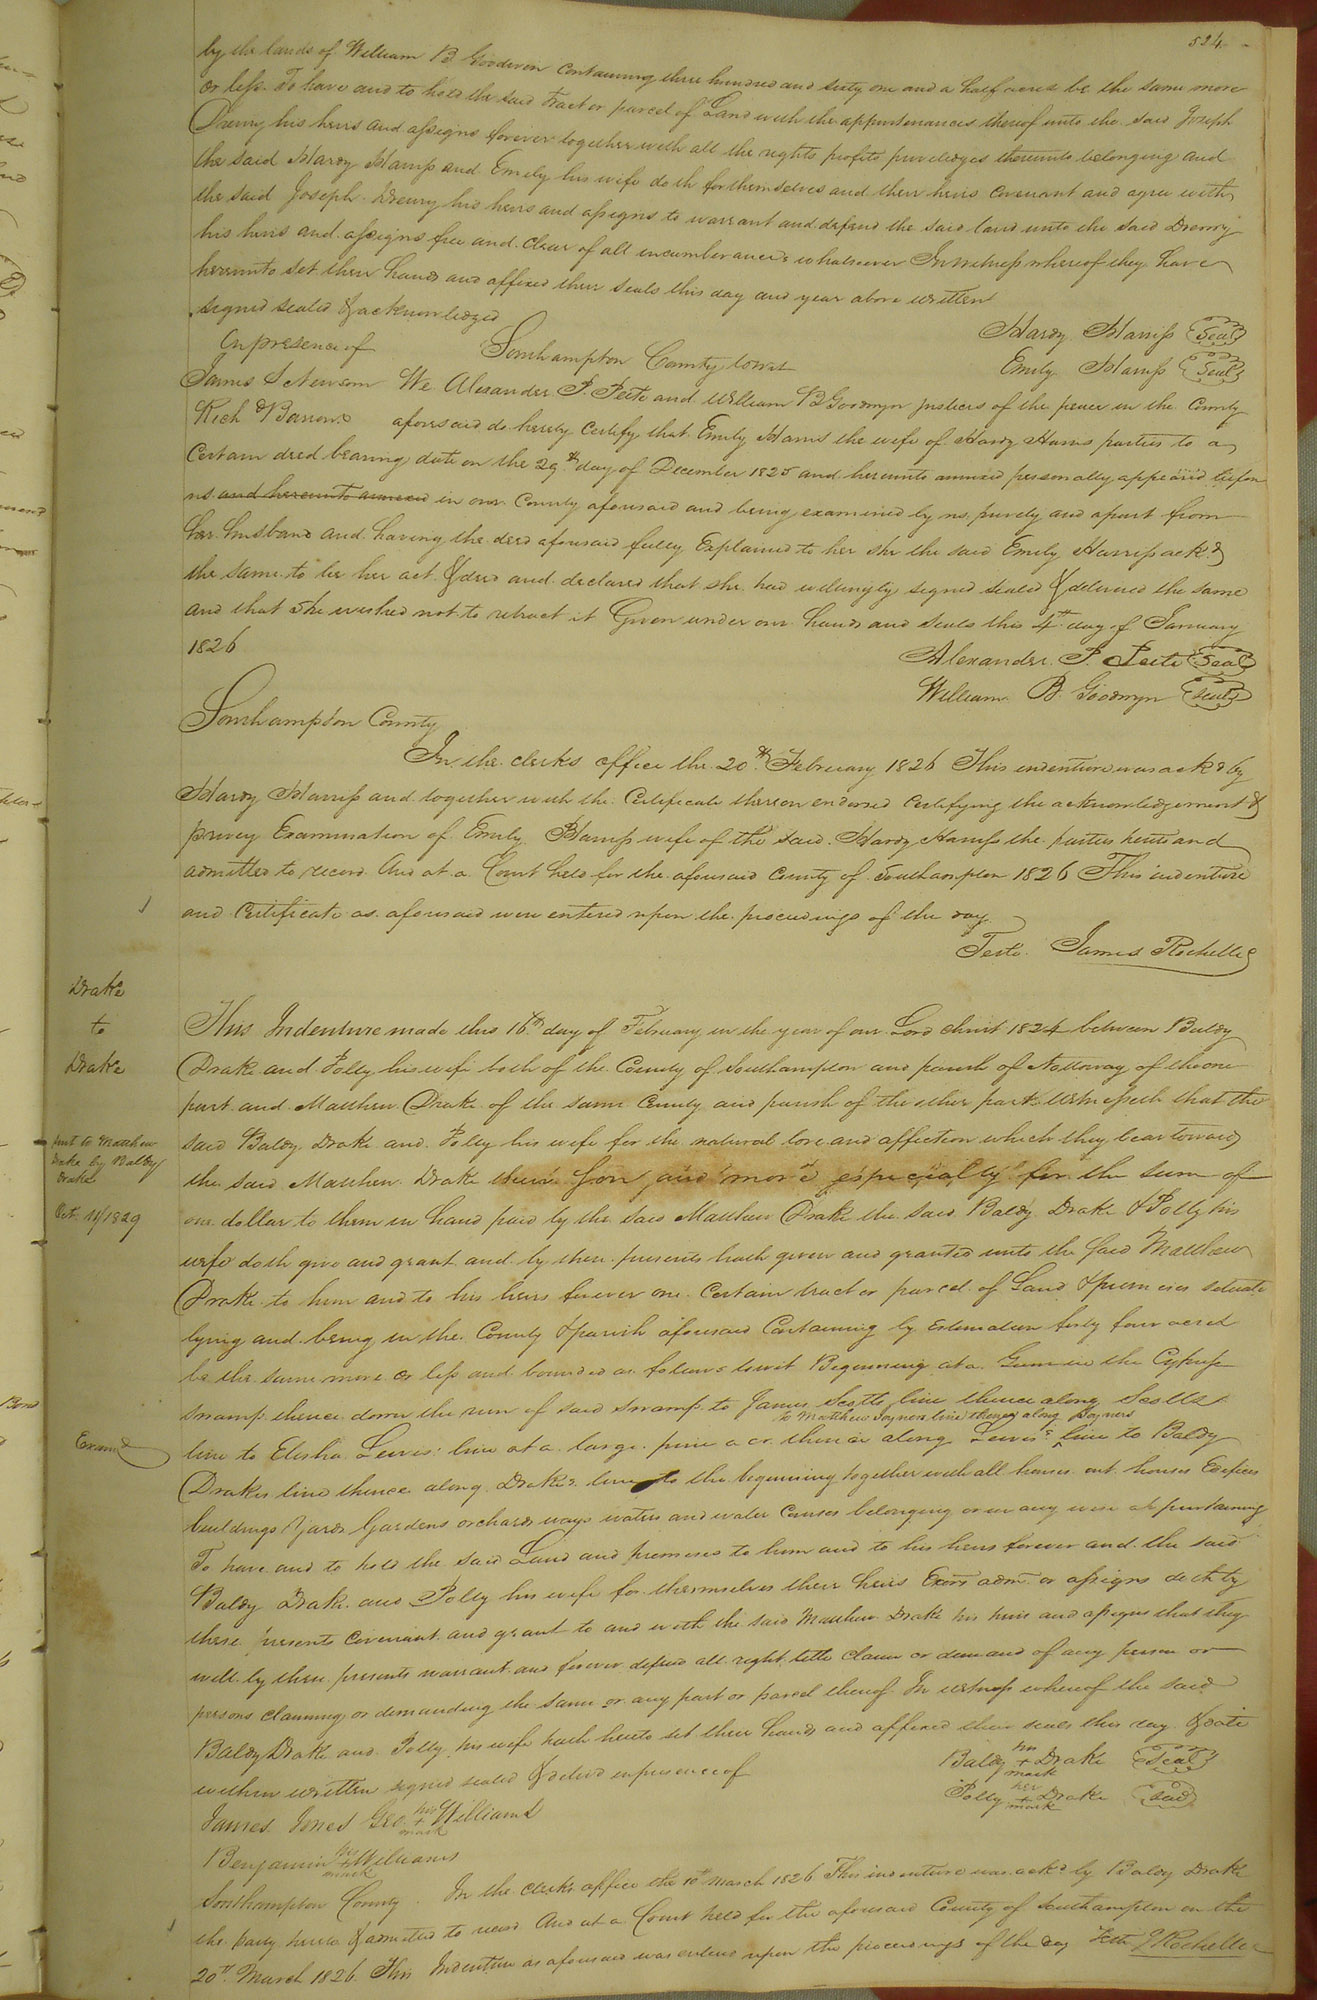 524
by the lands of William B Goodwin Containing three hundred and sixty one and a half acres be the same more
or less To have and to hold the said tract or parcel of Land with the appurtenances thereof unto the said Joseph
Drewry his heirs and assigns forever together with all the rights profits priviledges thereunto belonging and
the said Hardy Harriss and Emily his wife doth for themselves and their heirs Covenant and agree with
the said Joseph Drewry his heirs and assigns to warrant and defend the said land unto the said Drewry
his heirs and assigns free and clear of all incumberances whatsoever In witness whereof they have
hereunto set their hands and affixed their seals this day and year above written
signed sealed & acknowledged
In presence of
Hardy Harriss Seal
Emily Harriss Seal
Southampton County towit
James S Newsom We Alexander P. Peete and William B Goodwyn Justices of the peace in the County
Rich'd Barrow aforesaid do hereby Certify that Emily Harris the wife of Hardy Harris parties to a
Certain deed bearing date on the 29th day of December 1825 and hereunto annexed personally appeared before
us and hereunto annexed in our County aforesaid and being examined by us privily and apart from
her husband and having the deed aforesaid fully Explained to her she the said Emily Harriss ackd
the same to be her act & deed and declared that she had willingly signed sealed & delivered the same
and that she wished not to retract it Given under our hands and seals this 4th day of January
1826
Alexander P. Peete Seal
William B. Goodwyn Seal
Southampton County
In the clerks office the 20th February 1826 This indenture was ackd by
Hardy Harriss and together with the Certificate thereon endorsed Certifying the acknowledgement &
privey Examination of Emily Harriss wife of the said Hardy Harriss the parties hereto and
admitted to record And at a Court held for the aforesaid County of Southampton 1826 This indenture
and Certificate as aforesaid were entered upon the proceedings of the day
Teste James Rochelle
Drake
to
Drake
sent to Matthew
Drake by Baldy
Drake
Oct. 11/1829
Examd
This Indenture made this 16th day of February in the year of our Lord christ 1824 between Baldy
Drake and Polly his wife both of the County of Southampton and parish of Nottoway of the one
part and Matthew Drake of the same County and parish of the other part Witnesseth that the
said Baldy Drake and Polly his wife for the natural love and affection which they bear towards
the said Matthew Drake their Son and more especially for the sum of
one dollar to them in hand paid by the said Matthew Drake the said Baldy Drake & Polly his
wife doth give and grant and by these presents hath given and granted unto the said Matthew
Drake to him and to his heirs forever one Certain tract or parcel of Land & premises situate
lying and being in the County & parish aforesaid Containing by Estimation forty four acres
be the same more or less and bounded as follows towit Beginning at a Gum in the Cypress
swamp thence down the run of said swamp to James Scotts line thence along Scotts
to Matthew Joyners line thence along Joyners
line to Elisha Lewis' line at a large pine a cr. thence along Lewis's line to Baldy
Drakes line thence along Drakes line to the beginning together with all houses out houses Edifices
buildings Yards Gardens orchards ways waters and water Courses belonging or in any wise appurtaining
To have and to hold the said Land and premises to him and to his heirs forever and the said
Baldy Drake and Polly his wife for themselves their heirs Exors adm. or assigns doth by
these presents Covenant and grant to and with the said Matthew Drake his heirs and assigns that they
will by these presents warrant and forever defend all right title claim or demand of any person or
persons claiming or demanding the same or any part or parcel thereof In witness whereof the said
Baldy Drake and Polly his wife hath hereto set their hands and affixed their seals this day & date
within written signed sealed & delivd in presence of
Baldy his + mark Drake Seal
Polly her + mark Drake Seal
James Jones Geo. his + mark Williams
Benjamin his + mark Williams
Southampton County In the clerks office the 10th March 1826 This indenture was ackd by Baldy Drake
the party hereto & admitted to record And at a Court held for the aforesaid County of Southampton on the
20th March 1826 This Indenture as aforesaid was entered upon the proceedings of the day Teste J Rochelle